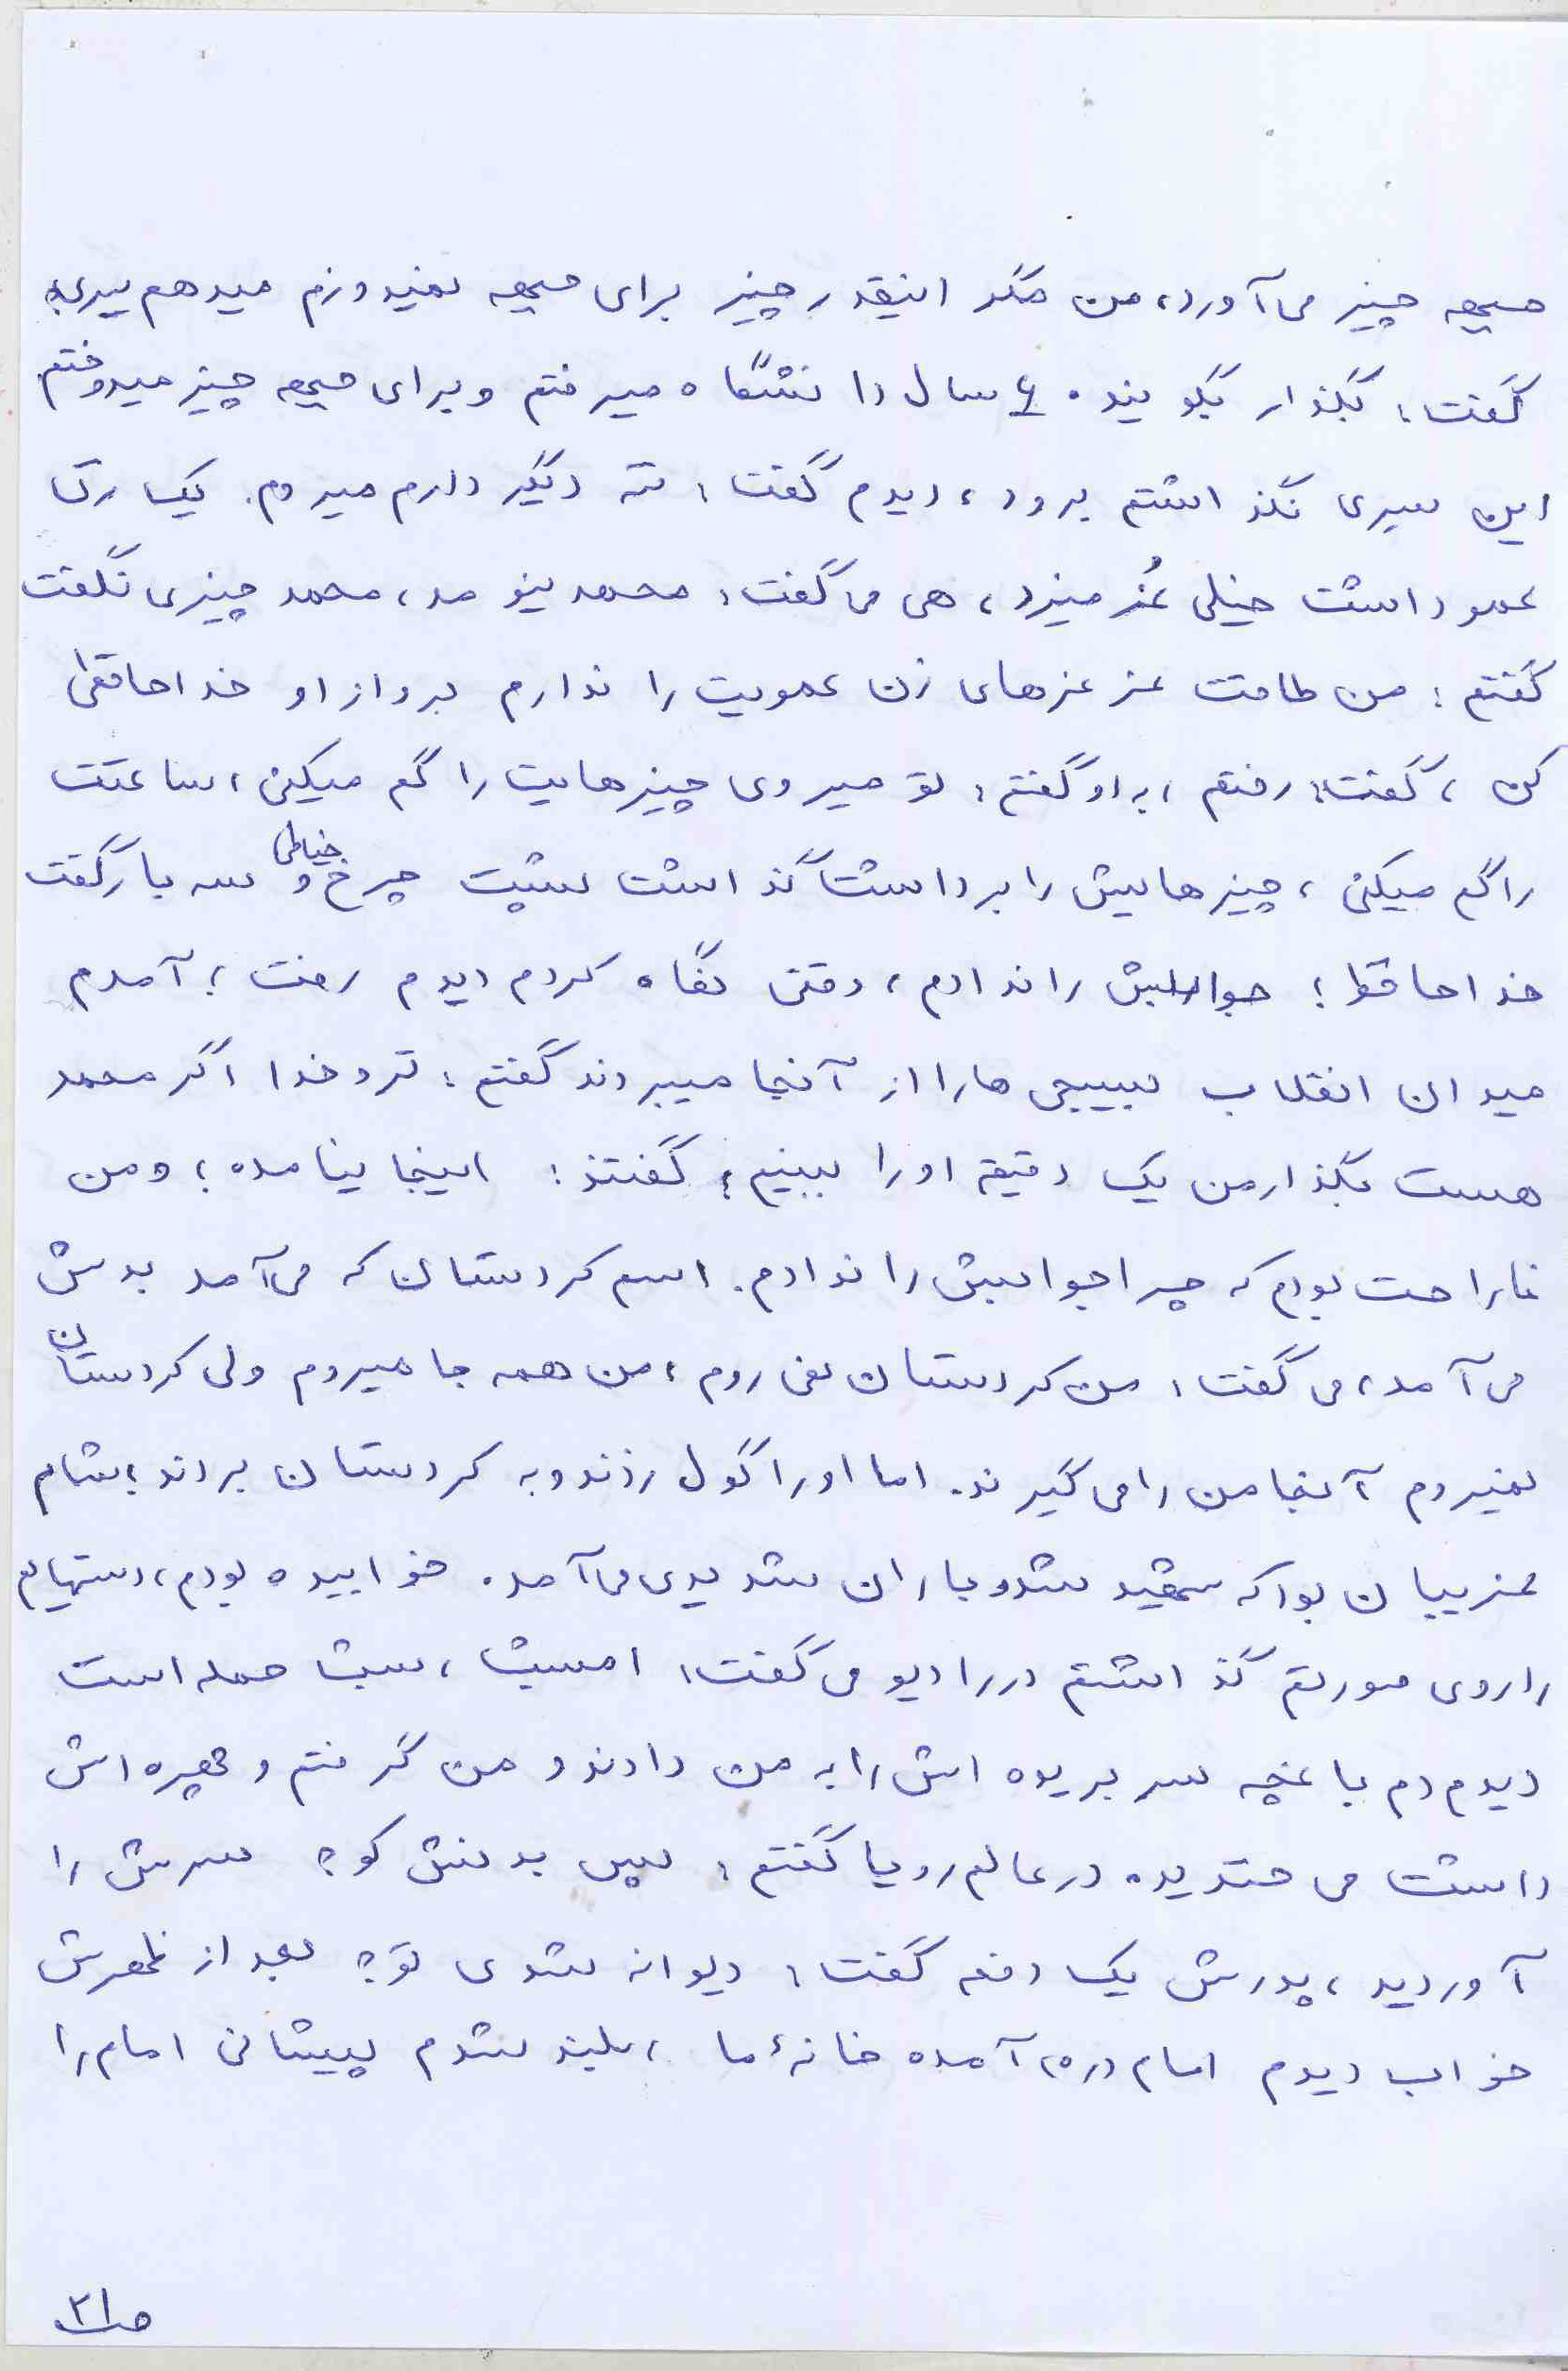 جبهه چیز می‌آورد، من مگر اینقدر چیز برای جبهه نمیدوزم میدهم ببری؟
گفت: بگذار بگویند. ۴ سال دانشگاه میرفتم و برای جبهه چیز میدوختم
این سری نگذاشتم برود، دیدم گفت: نه دیگر دارم میروم. یک
عمو داشت خیلی غُر میزد، هی می‌گفت: محمد نیومد، محمد چیزی نگفت
گفتم: من طاقت غرغرهای زن عمویت را ندارم برو از او خداحافظی
کن، گفت: رفتم، به او گفتم: تو میروی چیزهایت را گم میکنی، ساعتت
را گم میکنی، چیزهایش را برداشت گذاشت پشت چرخ خیاطی و سه بار گفت
خداحافظ؛ جوابش را ندادم، وقتی نگاه کردم دیدم رفت؛ آمدم
میدان انقلاب بسیجی ها را از آنجا میبردند گفتم: ترو خدا اگر محمد
هست بگذار من یک دقیقه او را ببینم؛ گفتند: اینجا نیامده؛ و من
ناراحت بودم که چرا جوابش را ندادم. اسم کردستان که می‌آمد بدش
می‌آمد، می گفت: من کردستان نمی روم، من همه جا میروم ولی کردستان
نمیروم آنجا من را می گیرند. اما او را گول زدند و به کردستان بردند؛ شام
غریبان بود که شهید شد و باران شدیدی می‌آمد. خوابیده بودم، دستهایم
را روی صورتم گذاشتم در رادیو می گفت: امشب، شب حمله است
دیدم دم باغچه سر بریده اش را به من دادند و من گرفتم و چهره اش
داشت می خندید. در عالم رویا گفتم: پس بدنش کو؟ سرش را
آوردید، پدرش یک دفعه گفت: دیوانه شدی تو؟ بعد از ظهرش
خواب دیدم امام آمده خانهٔ ما، بلند شدم پیشانی امام را
ص۲۱